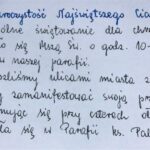 roczystość Najświętszego Cia
ólne świętowanie dla
się Mszą Św. o godz. 10
w naszej parafii.
zliśmy ulicami miasta z
zamanifestować swoją pr
mując się przy czterech o
ła się w Parafii ks. Pal